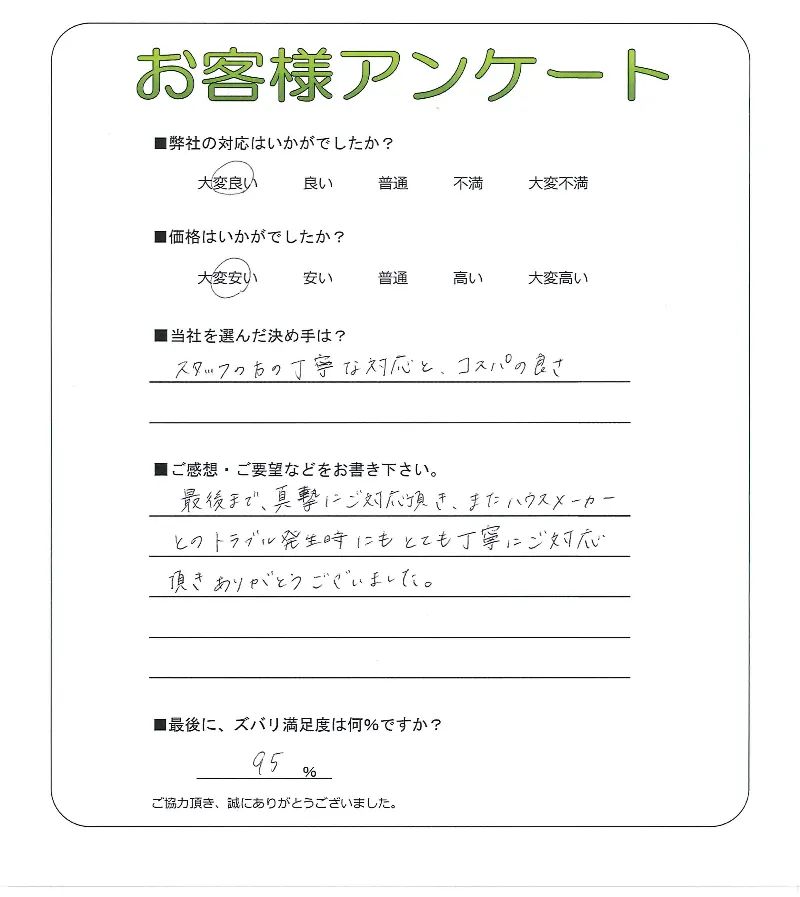 お客様アンケート
■弊社の対応はいかがでしたか？
大変良い 良い 普通 不満 大変不満
■価格はいかがでしたか？
大変安い 安い 普通 高い 大変高い
■当社を選んだ決め手は？
スタッフの方の丁寧な対応と、コスパの良さ
■ご感想・ご要望などをお書き下さい。
最後まで、真摯にご対応頂き、またハウスメーカー
とのトラブル発生時にもとても丁寧にご対応
頂きありがとうございました。
■最後に、ズバリ満足度は何％ですか？
95 %
ご協力頂き、誠にありがとうございました。